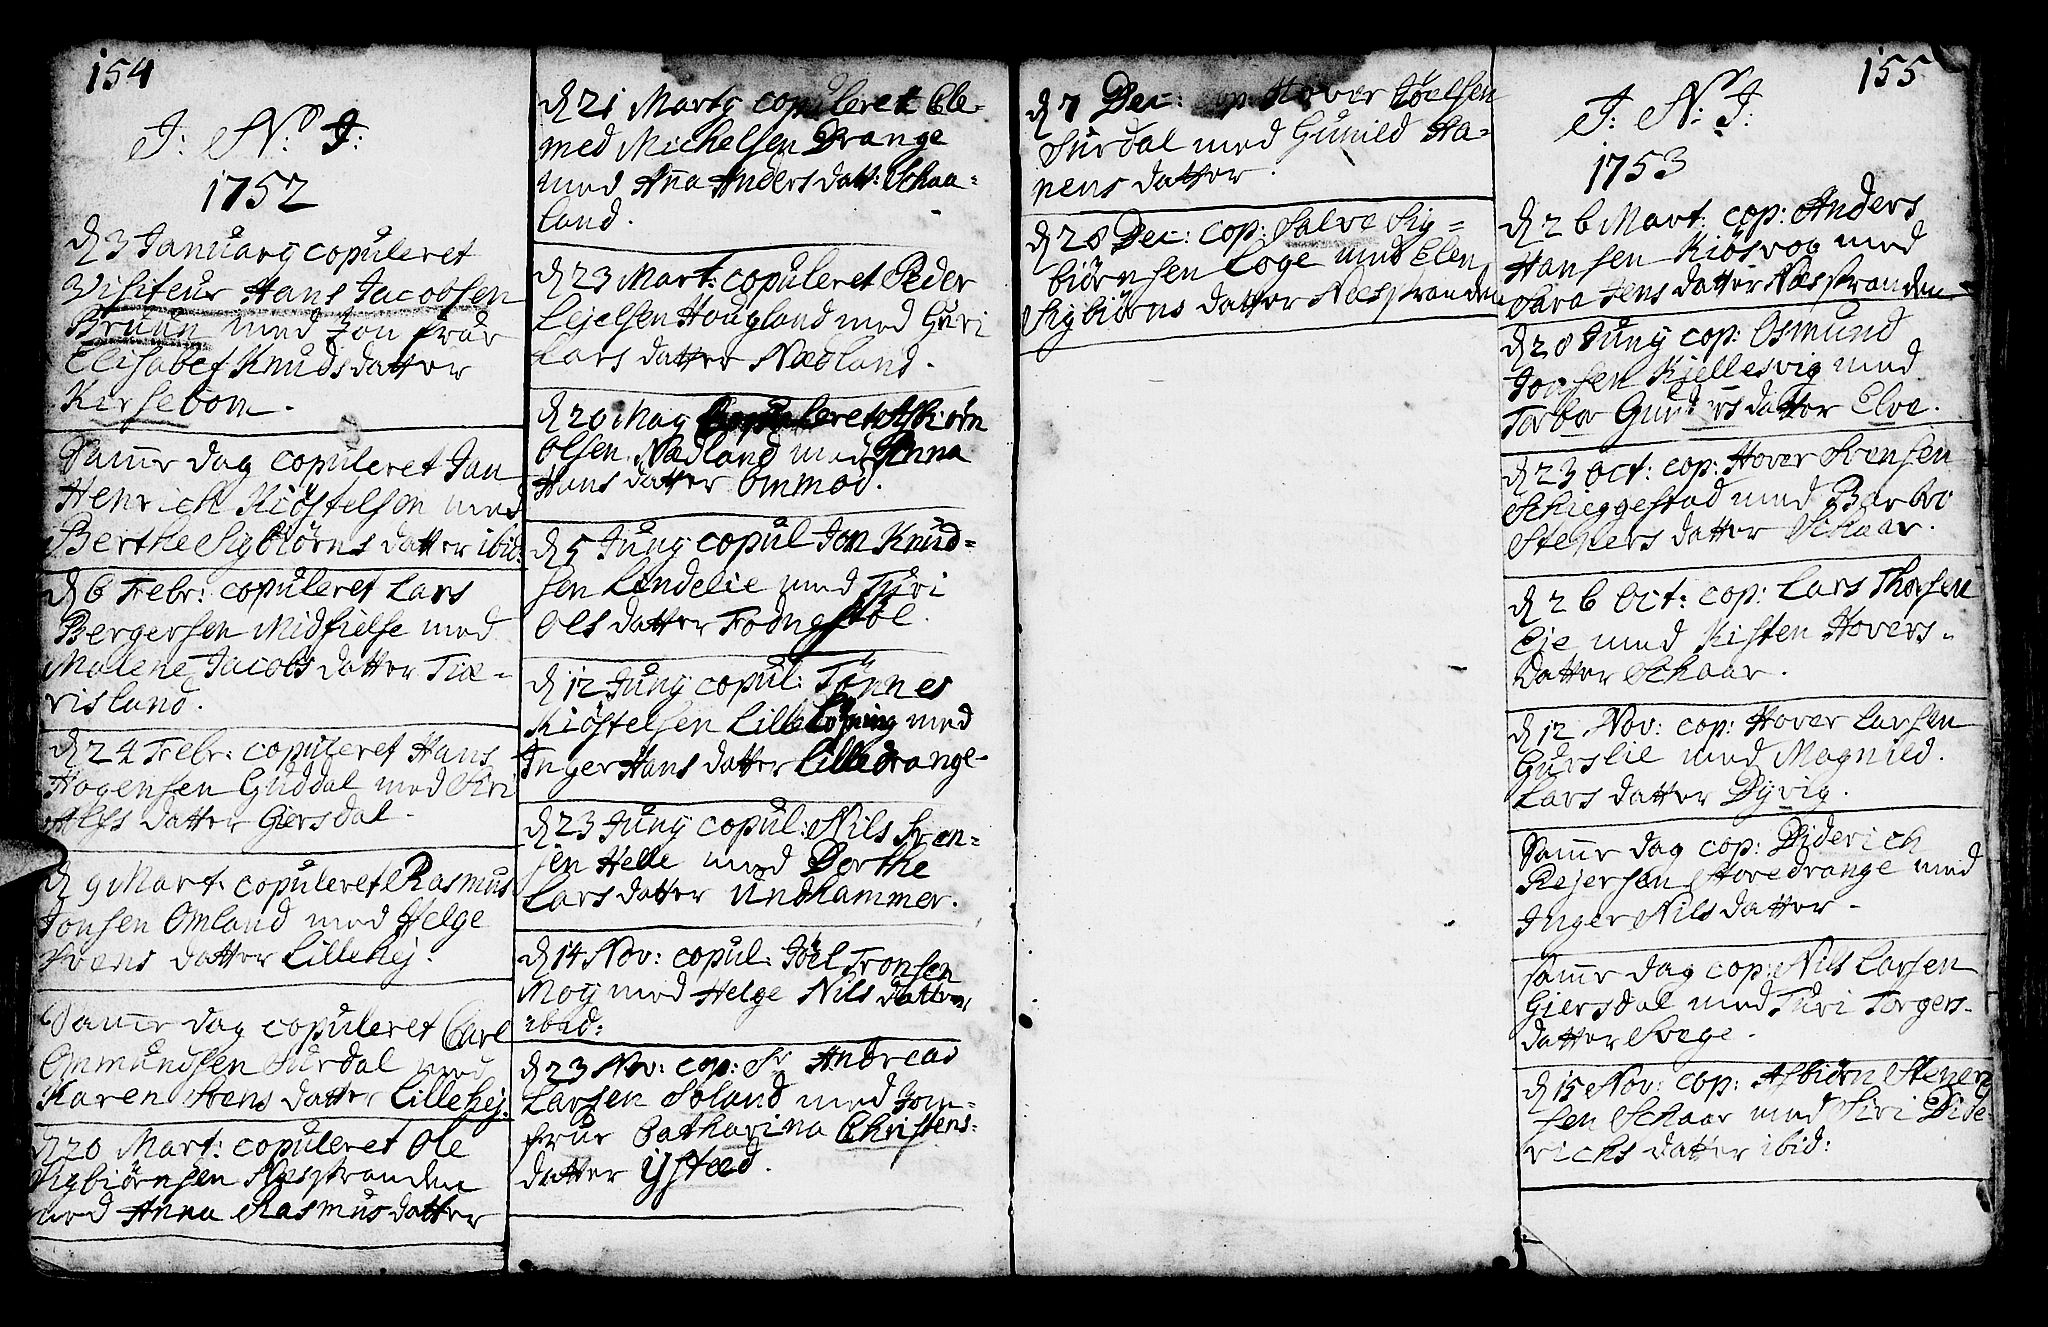 154
J: N: J:
1752
d 3 Januarij copuleret
Visiteur Hans Jacobsen
Bruun med Jomfrue
Elisabet Knudsdatter
Kirsebom.
Samme dag copuleret Jan
Henrich Kiöstelsen med
Berthe Sigbiörns datter ibid:
d 6 Febr: copuleret Lars
Bergersen Midfielse med
Malene Jacobs datter Tiæ-
risland.
d 24 Febr: copuleret Hans
Hogensen Guddal med Siri
Alfs datter Giersdal.
d 9 Mart: copuleret Rasmus
Jonsen Omland med Helge
Svens datter Lillehej.
Samme dag copuleret Carl
Onmundsen Surdal med
Karen Stens datter Lillehej.
d 20 Mart: copuleret Ole
Sigbiörnsen Næsstranden
med Anna Rasmusdatter
d 21 Martij copuleret Cle-
med Michelsen Drange
med Anna Anders datt: Schaa-
land.
d 23 Mart: copuleret Peder
Lejelsen Hougland med Guri
Lars datter Nædland.
d 20 Maij copuleret Asbiörn
Olsen Nædland med Anna
Hans datter Ommod.
d 5 Junij copul Jon Knud-
sen Lindelie med Turi
Ols datter Fodngstöl.
d 12 Junij copul: Tönnes
Kiöstelsen Lille med
Inger Hans datter Lilledrange
d 23 Junij copul: Nils Sven-
sen Helle med Dorthe
Lars datter Undhammer.
d 14 Nov: copul: Jöel Tronsen
Moij med Helge Nils datter
ibid:
d 23 Nov: cop: Sr Andreas
Larsen Soland med Jom-
frue Catharina Christens-
datter Ystæd.
d 7 Dec: cop: Hover Jöelsen
Surdal med Gunild Ha-
nens datter.
d 28 Dec: cop: Salve Sig-
biörnsen Loge med Elen
Sigbiörns datter Næsstranden
155
J: N: J:
1753
d 26 Mart: cop: Anders
Hansen Kiösvog med
Sara Jens datter Næsstranden
d 28 Junij cop: Osmund
Jonsen Kjellesvig med
Torbor Gunders datter Elve.
d 23 Oct: cop: Hover Svensen
Schieggestad med Barbro
Steners datter Schaar.
d 26 Oct: cop: Lars Thorsen
Eje med Kisten Hovers-
datter Schaar.
d 12 Nov: cop: Hover Larsen
Gurslie med Magnild
Lars datter Dyvig.
Samme dag cop: Diderich
Rejersen Storedrange med
Inger Nils datter
Samme dag cop: Nils Larsen
Giersdal med Turi Torgers-
datter Svege.
d 15 Nov: cop: Asbiörn Stener-
sen Schaar med Siri Dide-
richs datter ibid: